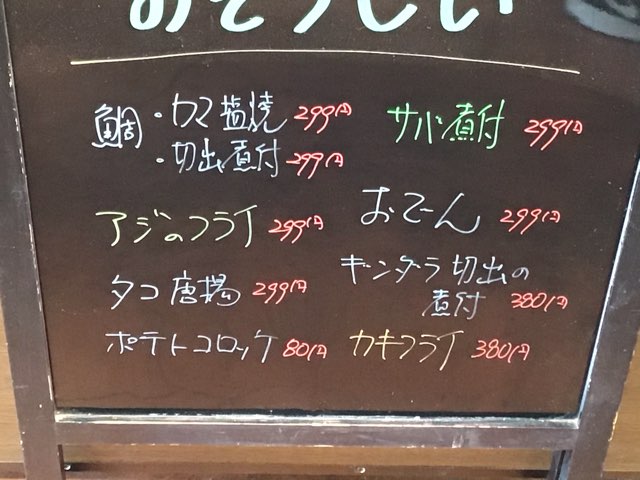 おそうざい
鯛・カマ塩焼 299円
・切出煮付 299円
アジのフライ 299円
タコ唐揚 299円
ポテトコロッケ 80円
サバ煮付 299円
おでーん 299円
ギンダラ切出の
煮付 380円
カキフライ 380円